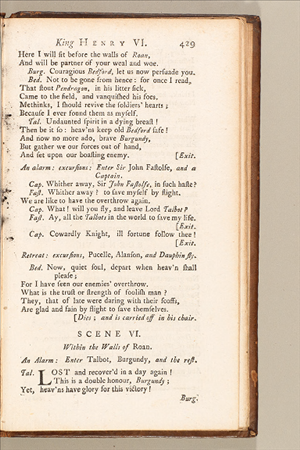 King HENRY VI. 429
Here I will sit before the walls of Roan,
And will be partner of your weal and woe.
Burg. Couragious Bedford, let us now persuade you.
Bed. Not to be gone from hence: for once I read,
That stout Pendragon, in his litter sick,
Came to the field, and vanquished his foes.
Methinks, I should revive the soldiers' hearts;
Because I ever found them as myself.
Tal. Undaunted spirit in a dying breast!
Then be it so: heav'ns keep old Bedford safe!
And now no more ado, brave Burgundy,
But gather we our forces out of hand,
And set upon our boasting enemy. [Exit.
An alarm: excursions: Enter Sir John Fastolfe, and a
Captain.
Cap. Whither away, Sir John Fastolfe, in such haste?
Fast. Whither away? to save myself by flight.
We are like to have the overthrow again.
Cap. What! will you fly, and leave Lord Talbot?
Fast. Ay, all the Talbots in the world to save my life.
[Exit.
Cap. Cowardly Knight, ill fortune follow thee!
[Exit.
Retreat: excursions, Pucelle, Alanson, and Dauphin fly.
Bed. Now, quiet soul, depart when heav'n shall
please;
For I have seen our enemies' overthrow.
What is the trust or strength of foolish man?
They, that of late were daring with their scoffs,
Are glad and fain by flight to save themselves.
[Dies; and is carried off in his chair.
SCENE VI.
Within the Walls of Roan.
An Alarm: Enter Talbot, Burgundy, and the rest.
Tal. LOST and recover'd in a day again!
This is a double honour, Burgundy;
Yet, heav'ns have glory for this victory!
Burg.